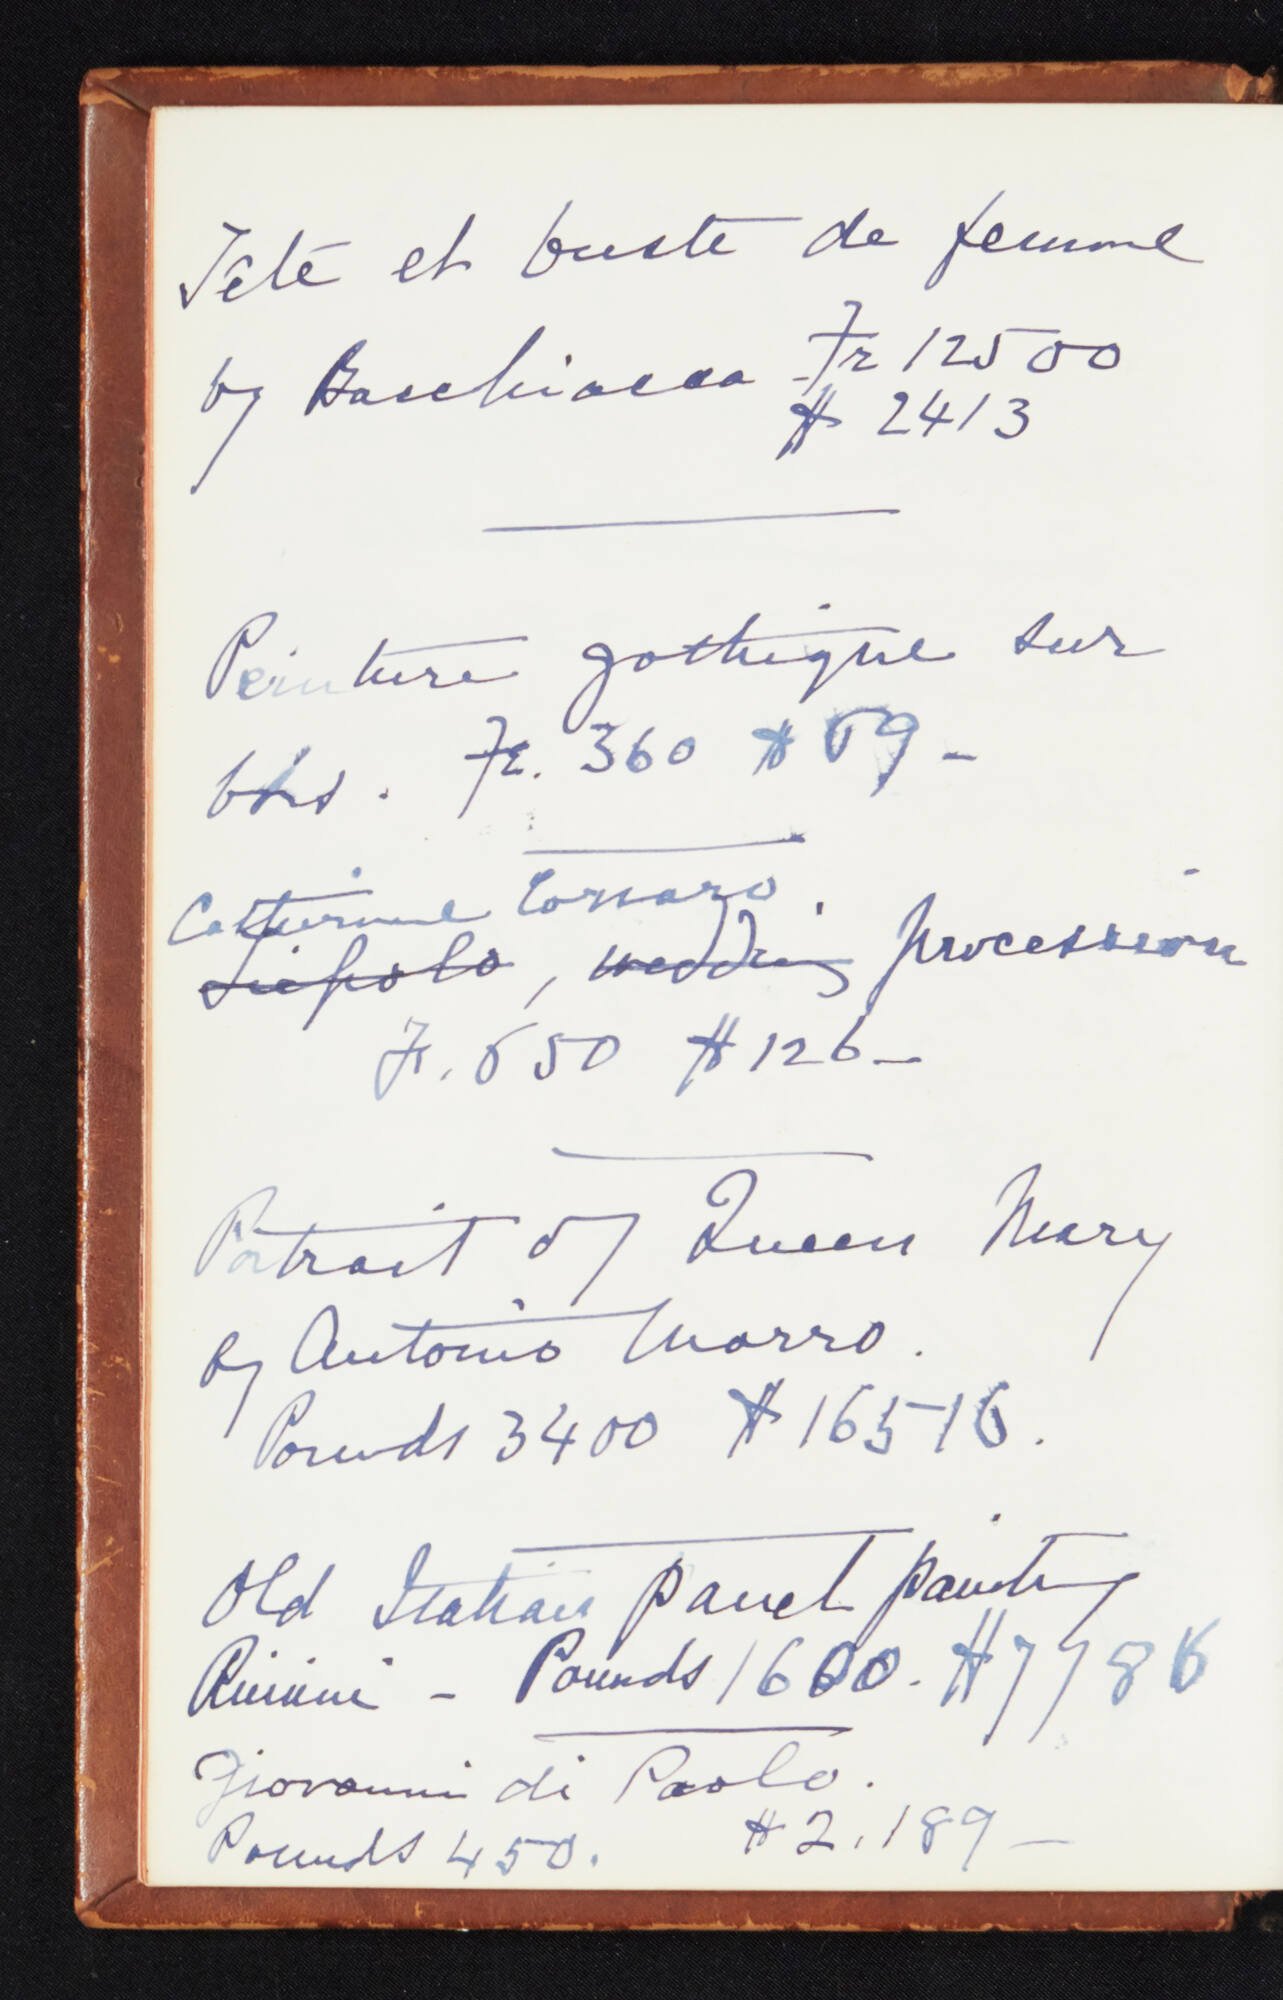 Tête et buste de femme
by Bacchiacca Fr 12500
$ 2413
Peinture gothique sur
bois. Fr. 360 $ 69 -
Catherine Cornaro.
Tiepolo, wedding procession
Fr. 650 $ 126 -
Portrait of Queen Mary
by Antonio Morro.
Pounds 3400 $ 16516.
Old Italian panel painting
Rimini - Pounds 1600. $ 7786
Giovanni di Paolo.
Pounds 450. $ 2.189 -